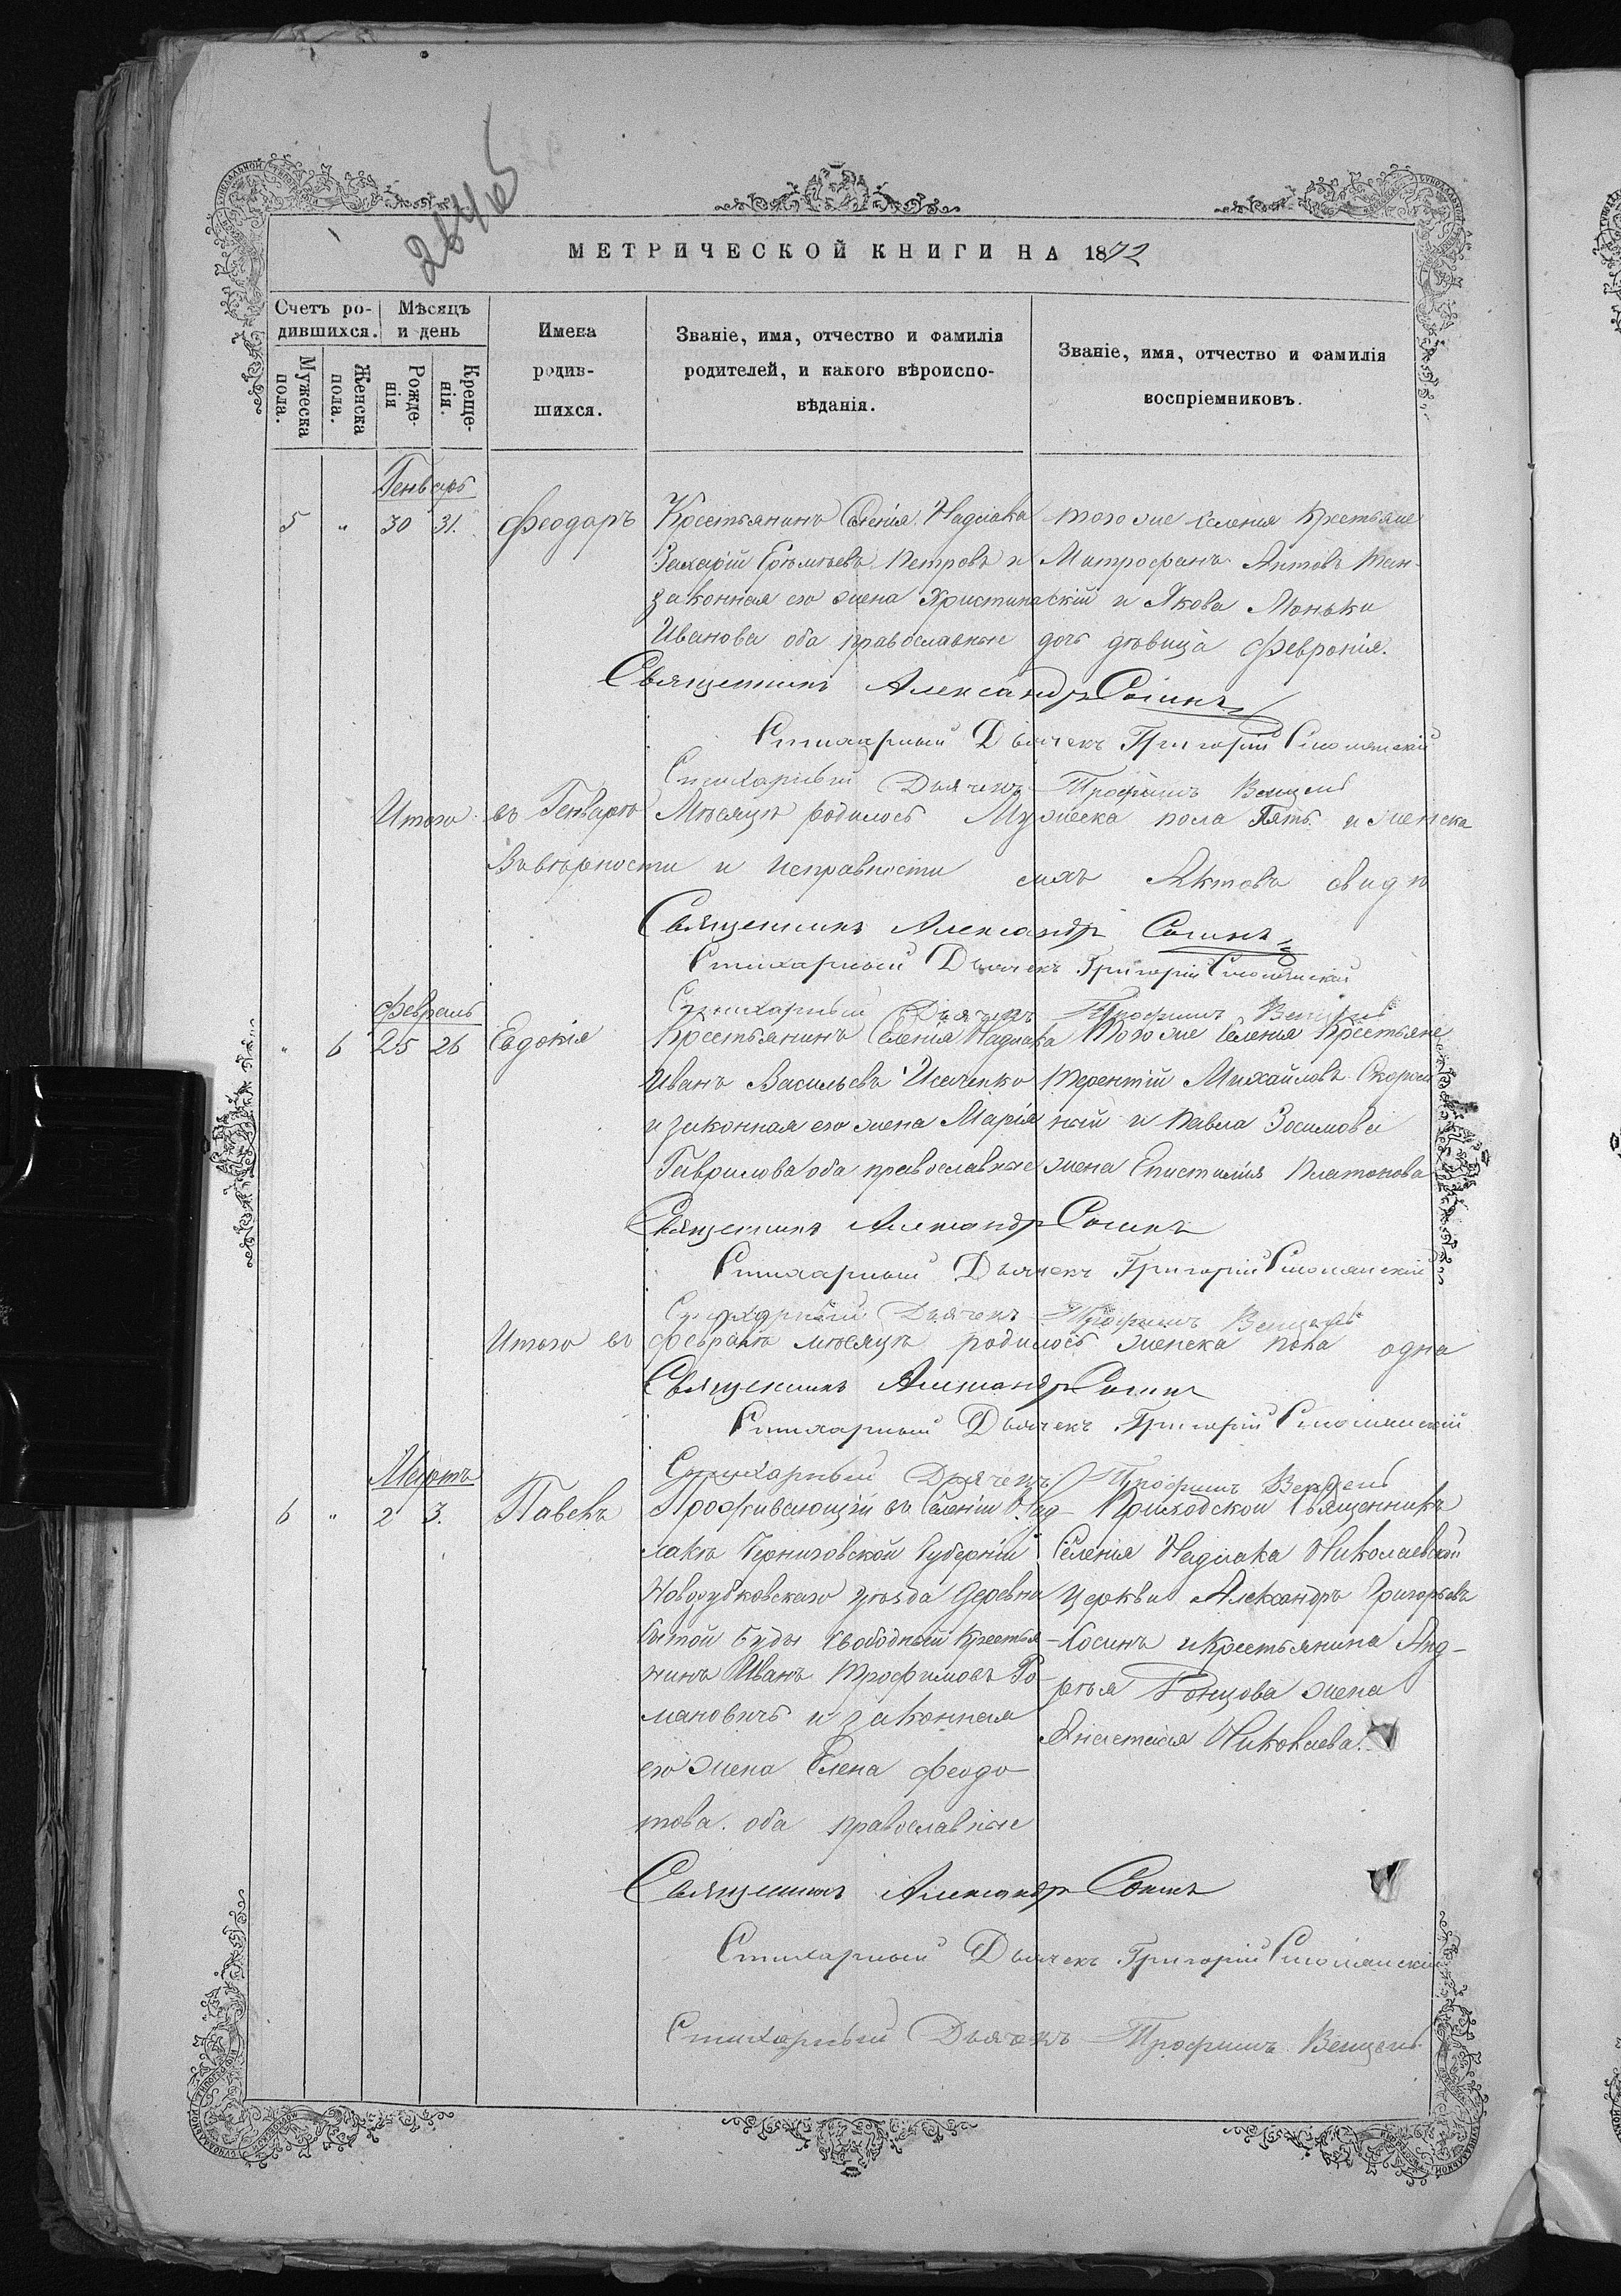 МЕТРИЧЕСКОЙ КНИГИ НА 1872
Счетъ ро-
дившихся.
Мѣсяцъ
и день
Мужеска
пола.
Женска
пола.
Рожде-
нія
Креще-
нія.
Имена
родив-
шихся.
Званіе, имя, отчество и фамилія
родителей, и какого вѣроиспо-
вѣданія.
Званіе, имя, отчество и фамилія
воспріемниковъ.
Генварь
5 " 30 31. Феодоръ
Крестьянинъ Селенія Надлака
Захарій Петровъ и
законная его жена Христина
Иванова оба православные
того же селенія Крестьяне
Митрофанъ
скій и Якова
дочь дѣвица Февронія.
Священникъ Александръ Сосинъ
Стихарный Дьячекъ Григорій Смолянскій
Стихарный Дьячекъ Трофимъ
Итого въ Генварѣ Мѣсяцѣ родилось Мужеска пола Пять и женска
Въ вѣрности и исправности сихъ Актовъ свидѣ
Священникъ Александръ Сосинъ
Стихарный Дьячекъ Григорій Смолянскій
Стихарный Дьячекъ Трофимъ
Февраль
" 6 25 26 Евдокія
Крестьянинъ Селенія Надлака
Иванъ Васильевъ Исаченко
и законная его жена Марія
Гаврилова оба православные
того же Селенія Крестьяне
Терентій Михайловъ
ный и Павла Зосимова
жена Епистимія Платонова
Священникъ Александръ Сосинъ
Стихарный Дьячекъ Григорій Смолянскій
Стихарный Дьячекъ Трофимъ
Итого въ Февралѣ мѣсяцѣ родилось женска пола одна
Священникъ Александръ Сосинъ
Стихарный Дьячекъ Григорій Смолянскій
Стихарный Дьячекъ Трофимъ
Мартъ
6 " 2 3. Павелъ
Проживающій въ Селеніи Над-
лакѣ Черниговской Губерніи
Новозубковскаго уѣзда деревни
Буды Свободный Крестья
нинъ Иванъ Трофимовъ Ро
мановичъ и законная
его жена Елена Феодо
това. оба православные
Приходской Священникъ
Селенія Надлака Николаевской
Церкви Александръ Григорьевъ
Сосинъ и Крестьянина Анд-
рея жена
Анастасія Николаева.
Священникъ Александръ Сосинъ
Стихарный Дьячекъ Григорій Смолянскій
Стихарный Дьячекъ Трофимъ